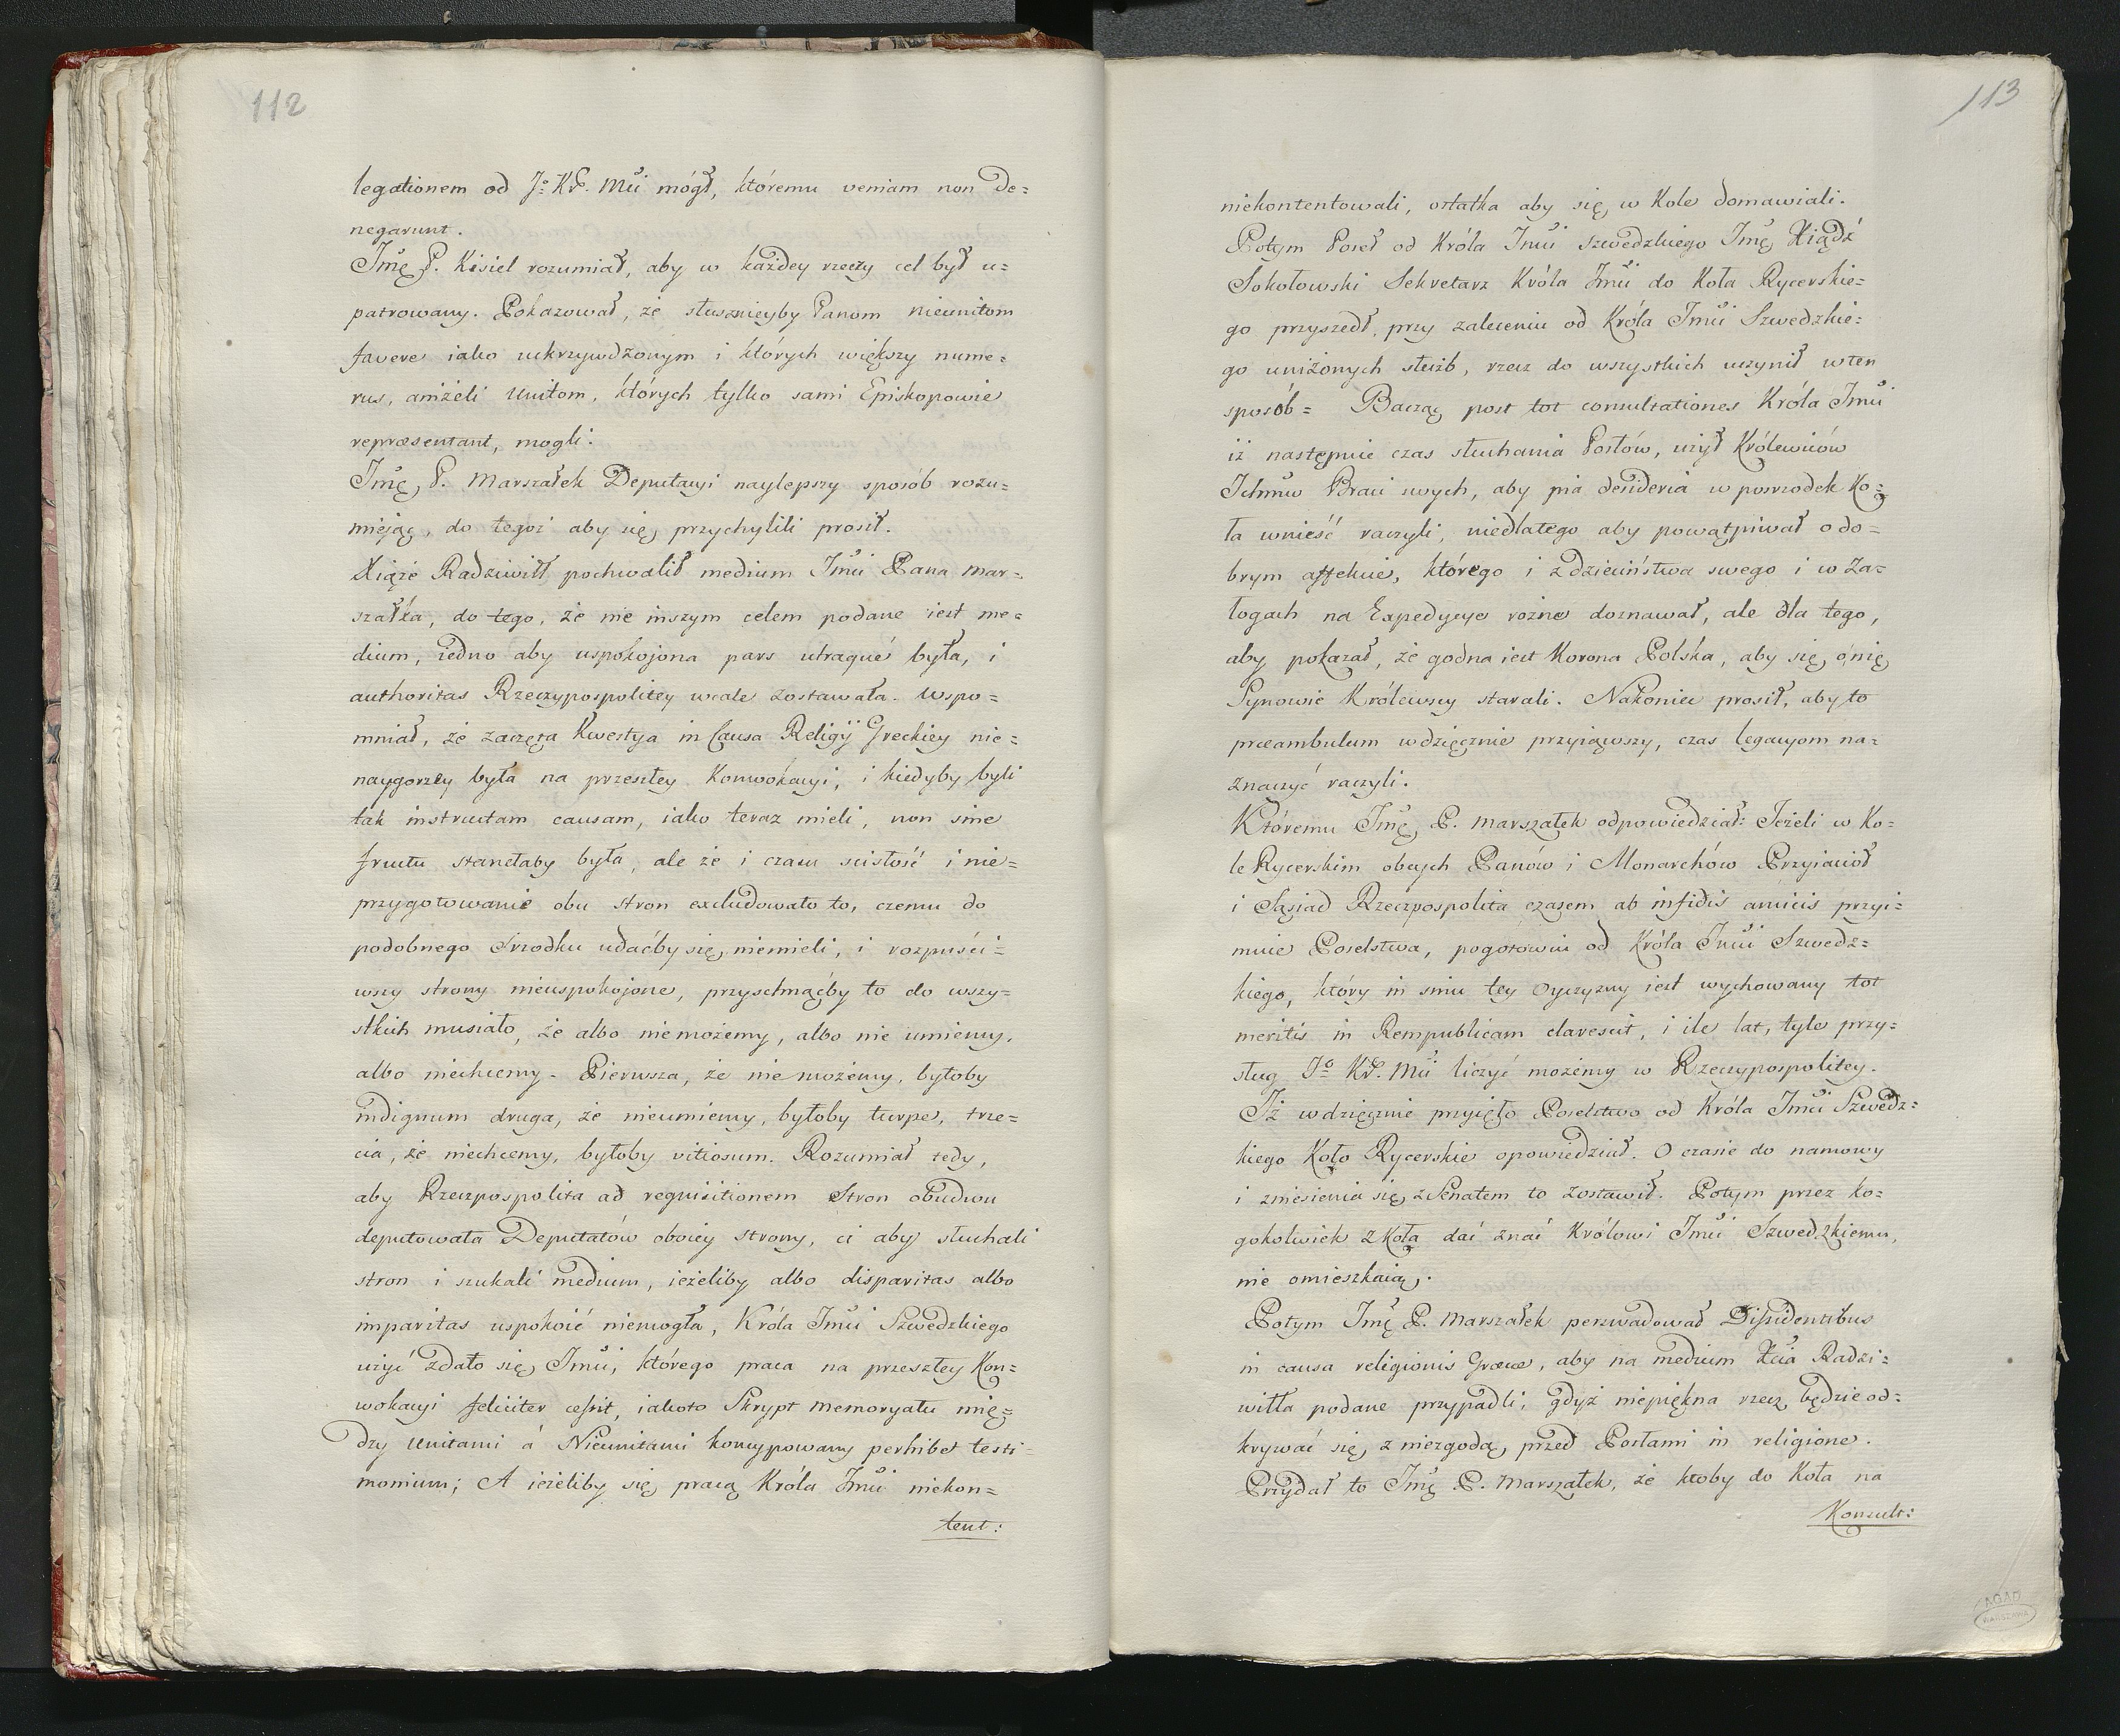 112
legationem od Jº Kr̃. Mci mógł, któremu veniam non de=
negarunt.
Jmć P. Kisiel rozumiał, aby w każdey rzeczy cel był u=
patrowany. Pokazował, że słuszniejby Panom nieunitom
favere iako ukrzywdzonym i których większy nume=
rus, aniżeli Unitom, których tylko sami Episkopowie
repræsentant, mogli.
Jmć P. Marszałek Deputacyi naylepszy sposób rozu=
miejąc, do tegoż aby się przychylili prosił.
Xiąże Radziwiłł pochwalił medium Jmci Pana Mar=
szałka, do tego, że nie inszym celem podane iest me=
dium, iedno aby uspokojona pars utraque była, i
authoritas Rzeczypospolitey wcale zostawała. Wspo=
mniał, że zaczęta Kwestya in Causa Religij Greckiey nie=
naygorzey była na przeszłey Konwokacyi, i kiedyby byli
tak instructam causam, iako teraz mieli, non sine
fructu stanęłaby była, ale że i czasu scisłość i nie=
przygotowanie obu stron excludowało to, czemu do
podobnego Srzodku udaćby się niemieli, i rozpuści=
wszy strony nieuspokojone, przyschnąćby to do wszy=
stkich musiało, że albo nie możemy, albo nie umiemy,
albo niechcemy. Pierwsza, że nie możemy, byłoby
indignum druga, że nieumiemy, byłoby turpe, trze=
cia, że niechcemy, byłoby vitiosum. Rozumiał tedy,
aby Rzeczpospolita ad requisitionem Stron obudwu
deputowała Deputatów oboiey strony, ci aby słuchali
stron i szukali medium, ieżeliby albo disparitas albo
imparitas uspokoić niemogła, Króla Jmci Szwedzkiego
użyć zdało się Jmci, którego praca na przeszłey Kon=
wokacyi feliciter cessit, iakoto Skrypt memoryału mię=
dzy Unitami á Nieunitami koncypowany perhibet testi=
monium; A ieżeliby się pracą Króla Jmci niekon=
tent:
113
niekontentowali, ostatka aby się w Kole domawiali.
Potym Poseł od Króla Jmci Szwedzkiego Jmć Xiądz
Sokołowski Sekretarz Króla Jmci do Koła Rycerskie=
go przyszedł, przy zaleceniu od Króla Jmci Szwedzkie=
go uniżonych służb, rzecz do wszystkich uczynił w ten
sposób= Bacząc post tot consultationes Króla Jmci
iż nastepuie czas słuchania Posłów, użył Królewiców
Ichmciw Braci swych, aby pia desideria w posrzodek Ko=
ła wnieść raczyli, niedlatego aby powątpiwał o do=
brym affekcie, którego i z dzieciństwa swego i w Za=
łogach na Expedycye rożne doznawał, ale dla tego,
aby pokazał, że godna iest Korona Polska, aby się o nię
Synowie Królewscy starali. Nakoniec prosił, aby to
præambulum wdzięcznie przyiąwszy, czas legacyom na=
znaczyć raczyli.
Któremu Jmć P. Marszałek odpowiedział: Jeżeli w Ko=
le Rycerskim obcych Panów i Monarchów Przyiaciół
i Sąsiad Rzeczpospolita czasem ab infidis amicis przyi=
muie Poselstwa, pogotowiu od Króla Jmci Szwedz=
kiego, który in sinu tey Oyczyzny iest wychowany tot
meritis in Rempublicam clarescit, i ile lat, tyle przy=
sług Jº Kr̃. Mci liczyć możemy w Rzeczypospolitey.
Iż wdzięcznie przyięło Poselstwo od Króla Jmci Szwedz=
kiego Koło Rycerskie opowiedział. O czasie do namowy
i zniesienia się z Senatem to zostawił. Potym przez ko=
gokolwiek z Koła dać znać Królowi Jmci Szwedzkiemu,
nie omieszkaią.
Potym Jmć P. Marszałek perswadował Dissidentibus
in causa religionis Græcæ, aby na medium Xcia Radzi=
wiłła podane przypadli; gdyż niepiękna rzecz będzie od=
krywać się z niezgodą przed Posłami in religione.
Przydał to Jmć P. Marszałek, że ktoby do Koła na
Konsult:
AGAD
WARSZAWA